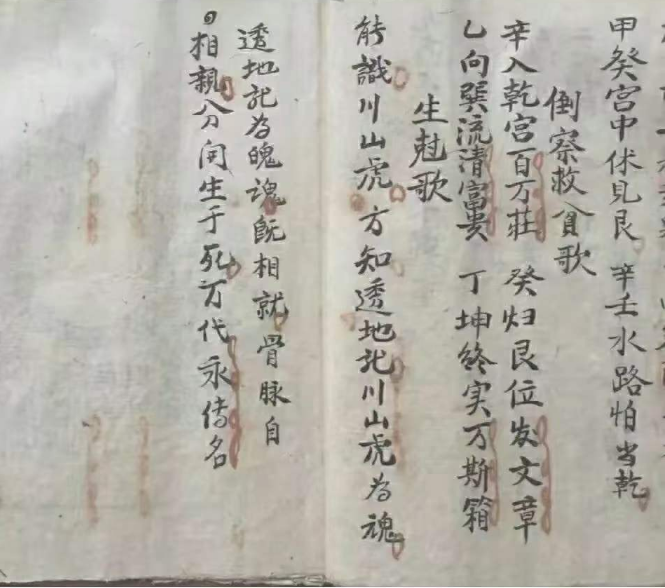 甲癸宫中休見艮 辛壬水路怕当乾
倒察救貧歌
辛入乾宫百万莊 癸归艮位发文章
乙向巽流清富贵 丁坤終实万斯箱
生尅歌
能識川山虎 方知透地龙川山虎为魂
透地龙为魄魂既相就骨脉自
相親分生于死万代永傳名